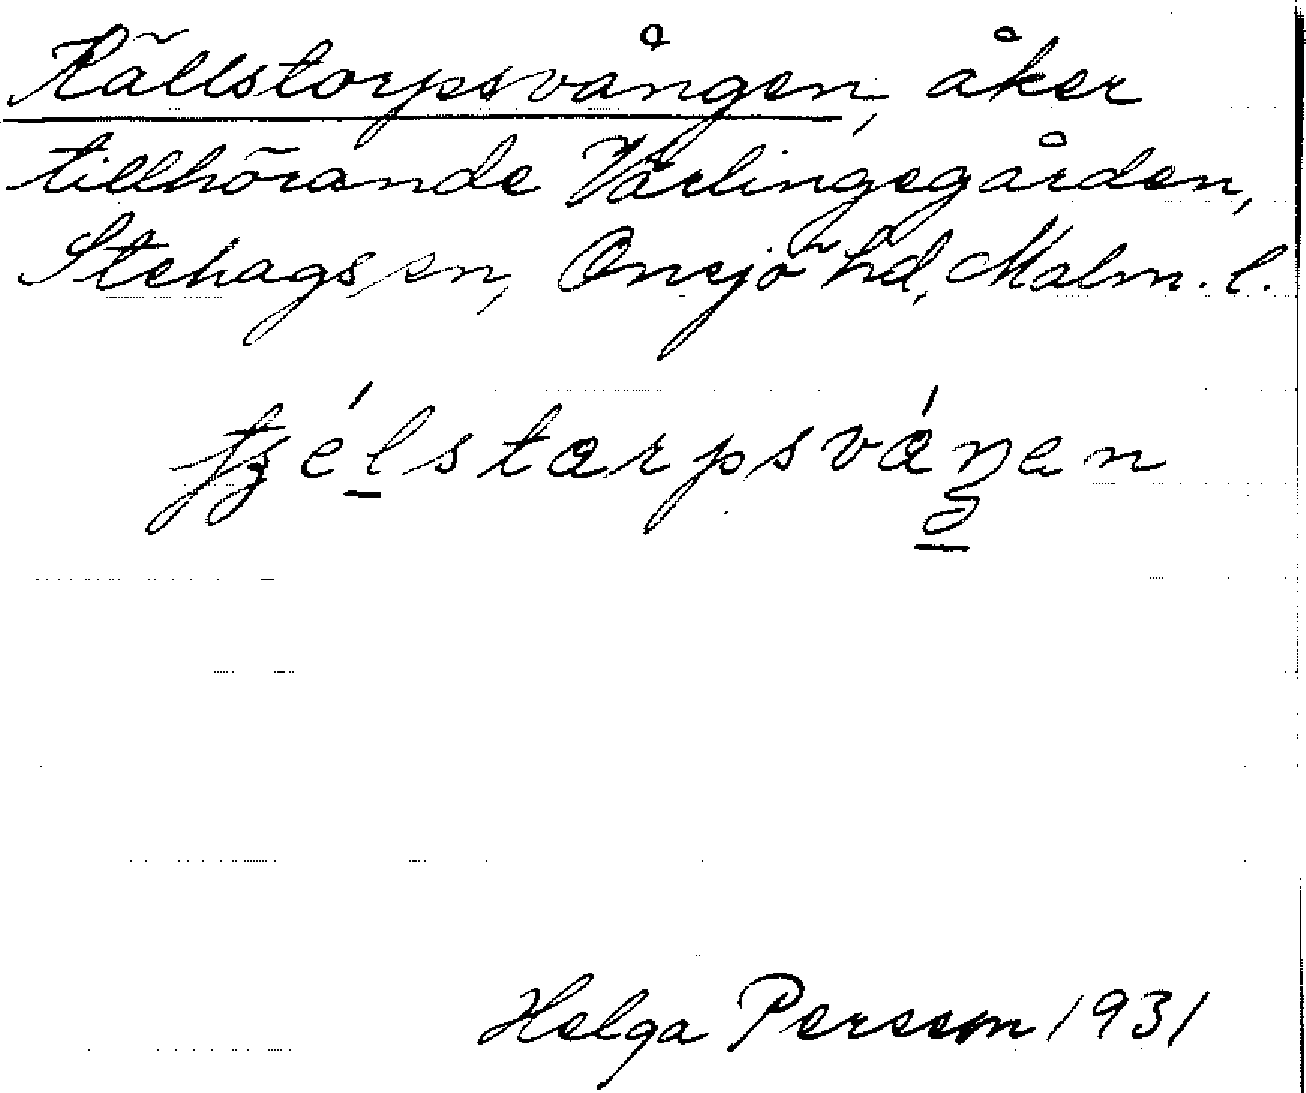 Källstorpsvången, åker
tillhörande Värlingegården,
Stehags sn, Onsjö hd, Malm. l.
Helga Persson 1931